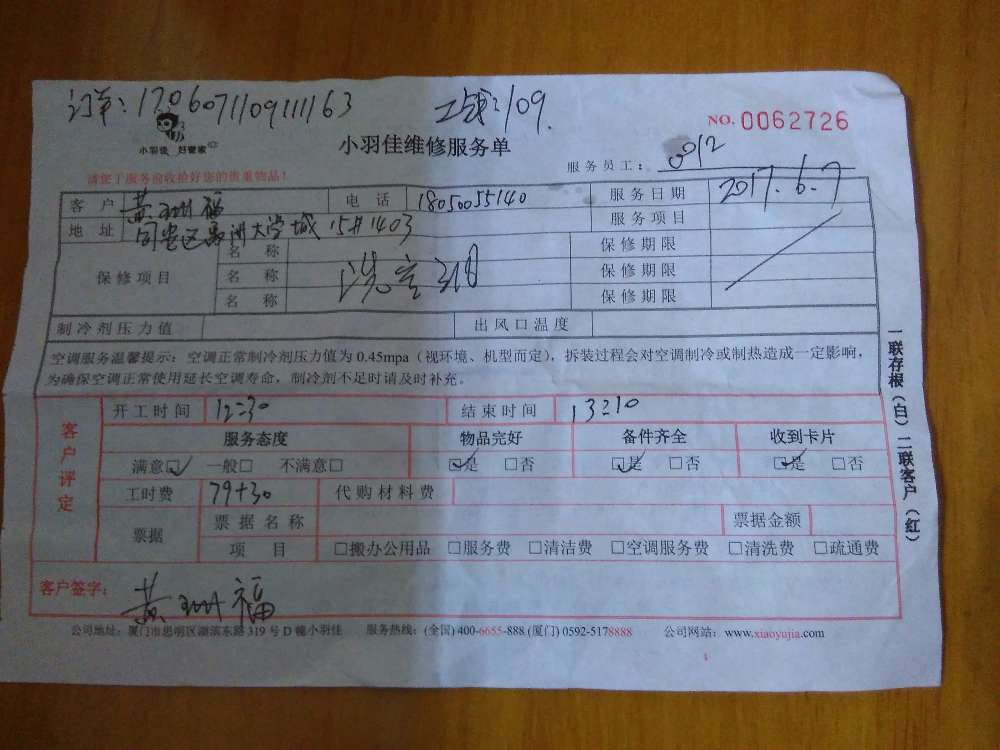 订单:1706071109111163 工钱:109.
小羽佳 好管家
小羽佳维修服务单
NO. 0062726
服务员工: 0012
请您于服务前收拾好您的贵重物品!
客 户 黄 福 电 话 18050055140 服务日期 2017.6.7
地 址 同安区禹洲大学城15#1403 服务项目
保修项目 名 称 洗空调 保修期限
名 称 保修期限
名 称 保修期限
制冷剂压力值 出风口温度
空调服务温馨提示:空调正常制冷剂压力值为 0.45mpa(视环境、机型而定),拆装过程会对空调制冷或制热造成一定影响,
为确保空调正常使用延长空调寿命,制冷剂不足时请及时补充。
客户评定
开工时间 12:30 结束时间 13:10
服务态度 物品完好 备件齐全 收到卡片
满意☑ 一般□ 不满意□ ☑是 □否 ☑是 □否 ☑是 □否
工时费 79+30 代购材料费
票据 票 据 名 称 票据金额
项 目 □搬办公用品 □服务费 □清洁费 □空调服务费 □清洗费 □疏通费
客户签字: 黄 福
公司地址:厦门市思明区湖滨东路 319 号 D 幢小羽佳 服务热线:(全国) 400-6655-888 (厦门) 0592-5178888 公司网站:www.xiaoyujia.com
一联存根(白)二联客户(红)